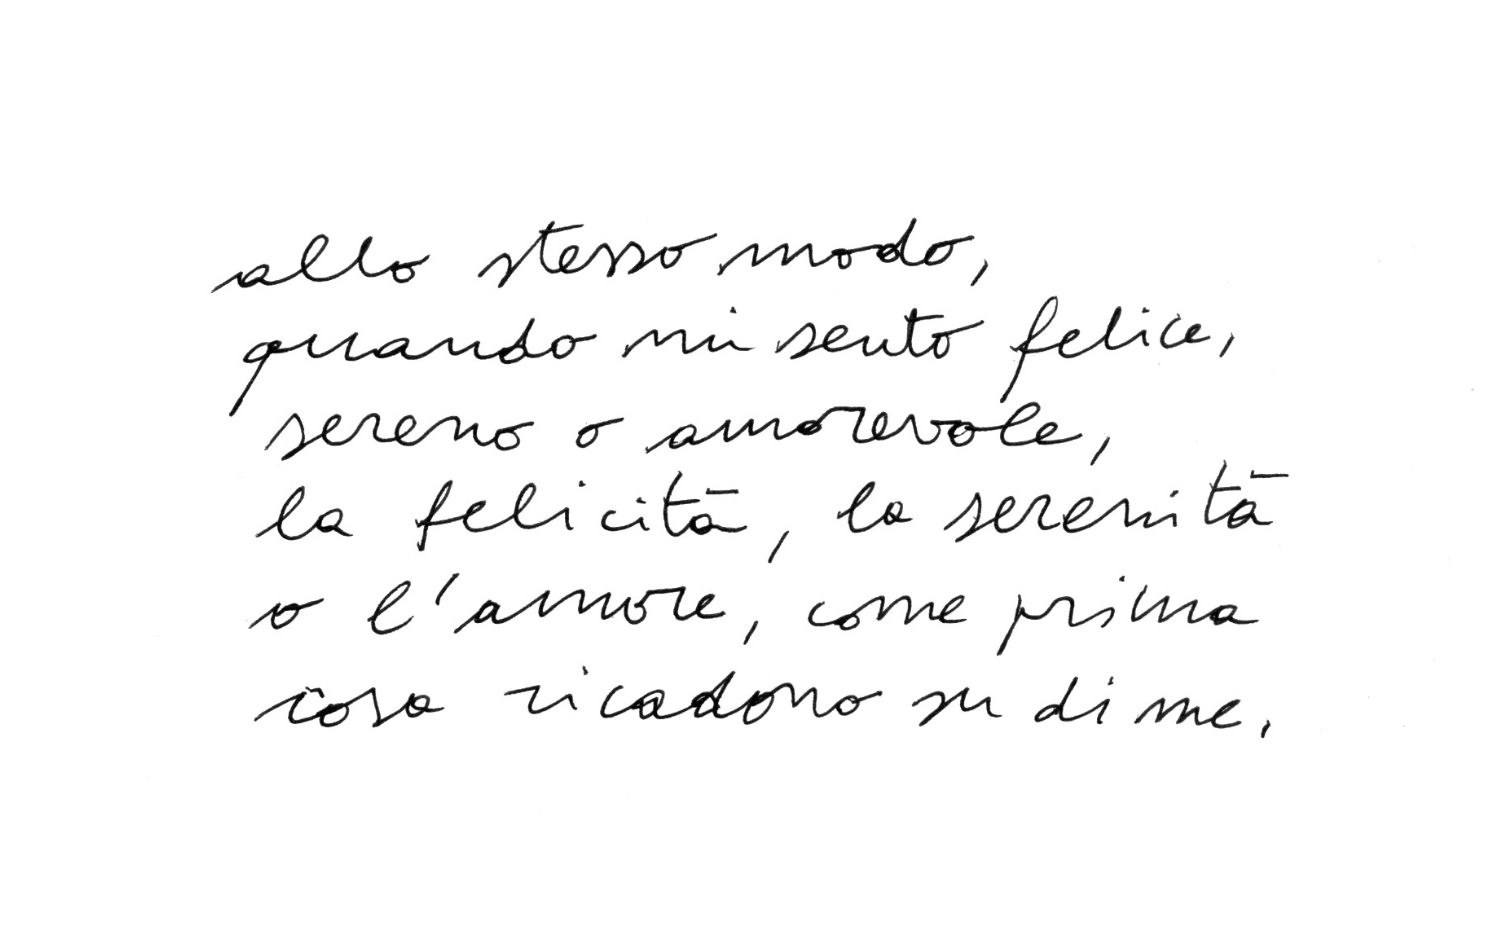 allo stesso modo,
quando mi sento felice,
sereno o amorevole,
la felicità, la serenità
o l'amore, come prima
cosa ricadono su di me.